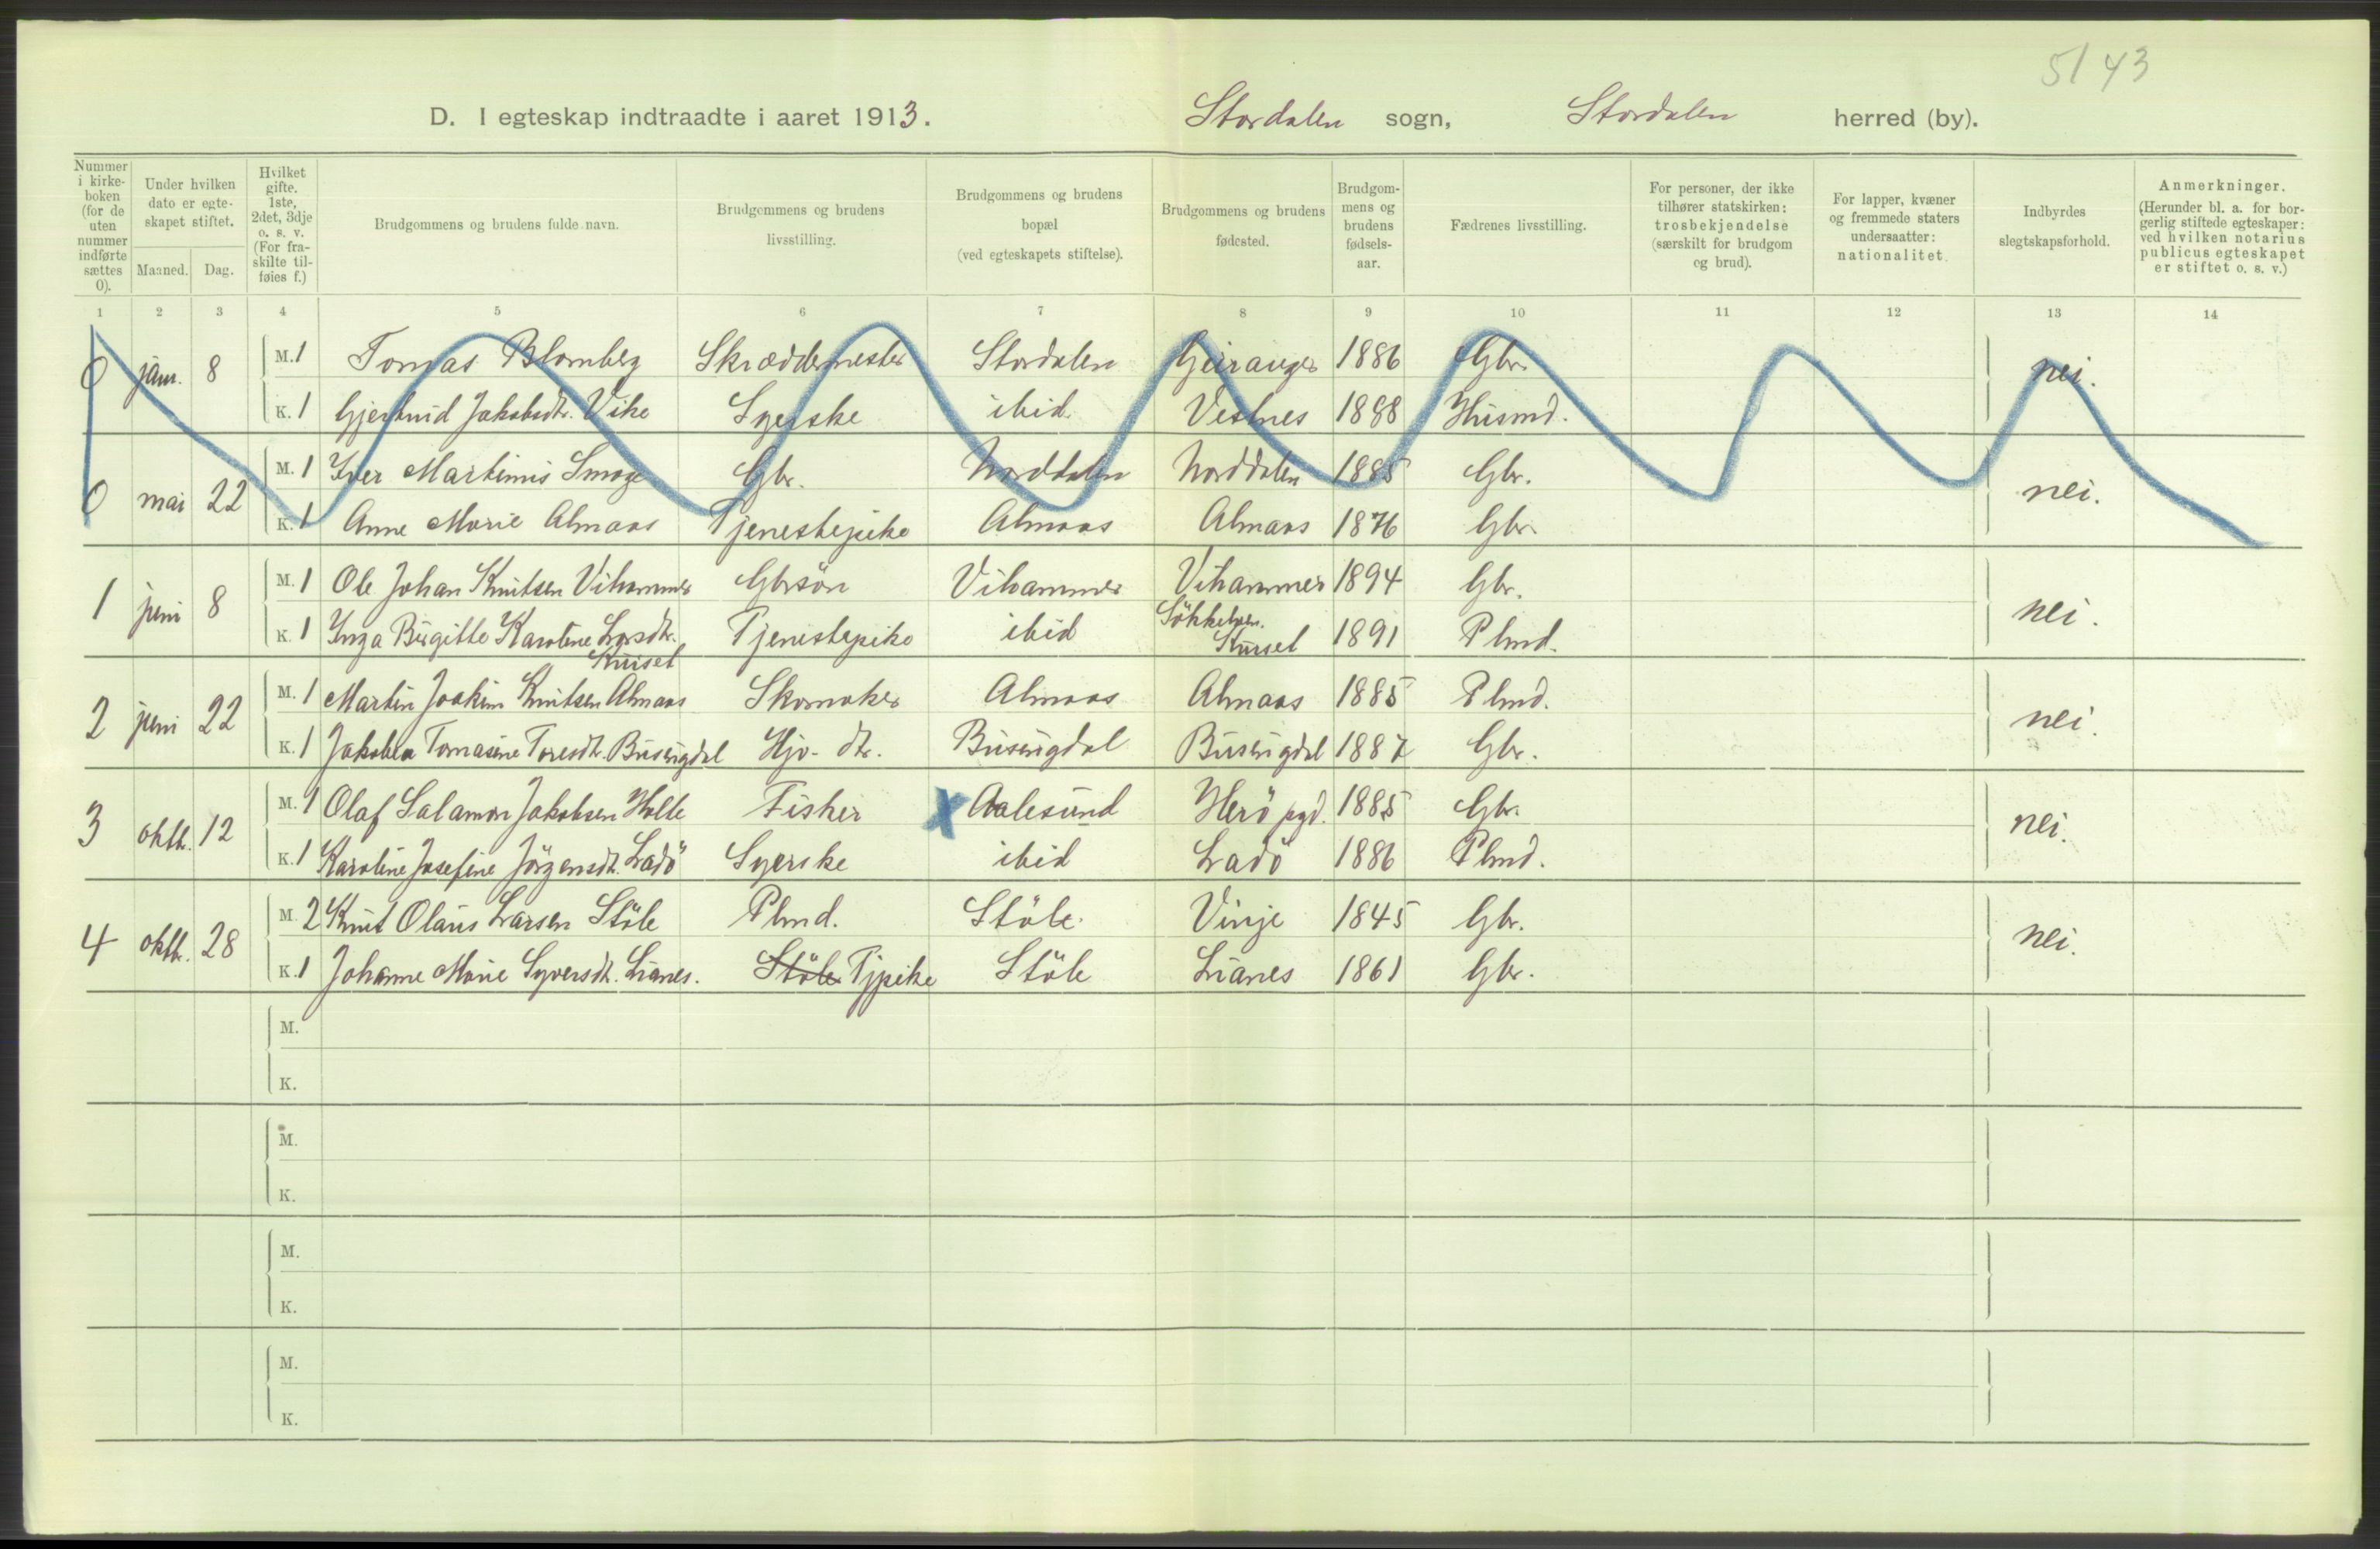 51 43
D. I egteskap indtraadte i aaret 1913. Stordalen sogn, Stordalen herred (by).
Nummer i kirke-boken (for de uten nummer indførte sættes 0). Under hvilken dato er egte-skapet stiftet. Maaned. Dag. Hvilket gifte. 1ste, 2det, 3dje o. s. v. (For fra-skilte til-føies f.) Brudgommens og brudens fulde navn. Brudgommens og brudens livsstilling. Brudgommens og brudens bopæl (ved egteskapets stiftelse). Brudgommens og brudens fødested. Brudgom-mens og brudens fødsels-aar. Fædrenes livsstilling. For personer, der ikke tilhører statskirken: trosbekjendelse (særskilt for brudgom og brud). For lapper, kvæner og fremmede staters undersaatter: nationalitet. Indbyrdes slegtskapsforhold. Anmerkninger. (Herunder bl. a. for bor-gerlig stiftede egteskaper: ved hvilken notarius publicus egteskapet er stiftet o. s. v.)
1 2 3 4 5 6 7 8 9 10 11 12 13 14
0 jan. 8 M. 1 Tomas Blomberg Skræddermester Stordalen Geiranger 1886 Gbr. nei.
K. 1 Gjertrud Jakobsdtr. Vike Syerske ibid. Vestnes 1888 Husmd.
0 mai 22 M. 1 Iver Martinus Smoge Gbr. Norddalen Norddalen 1885 Gbr. nei.
K. 1 Anne Marie Almaas Tjenestepike Almaas Almaas 1876 Gbr.
1 juni 8 M. 1 Ole Johan Knutsen Vihammer Gbrsön Vihammer Vihammer 1894 Gbr. nei.
K. 1 Inga Birgitte Karoline Larsdtr. Kursel Tjenestepike ibid Sökkelven. 1891 Plmd.
2 juni 22 M. 1 Martin Joakim Knutsen Almaas Skomaker Almaas Almaas 1885 Plmd. nei.
K. 1 Jakobea Tomasine Toresdtr. Busengdal Hjv. dtr. Busengdal Busengdal 1887 Gbr.
3 oktb. 12 M. 1 Olaf Salamon Jakobsen Holte Fisker X Aalesund Herö pgd. 1885 Gbr. nei.
K. 1 Karoline Josefine Jörgensdt. Ladö Syerske ibid Ladö 1886 Plmd.
4 oktb. 28 M. 2 Knut Olaus Larsen Stöle Plmd. Stöle. Vinje 1845 Gbr. nei.
K. 1 Johanne Marie Syversdt. Lianes. Stöle Tjpike Stöle Lianes 1861 Gbr.
M.
K.
M.
K.
M.
K.
M.
K.